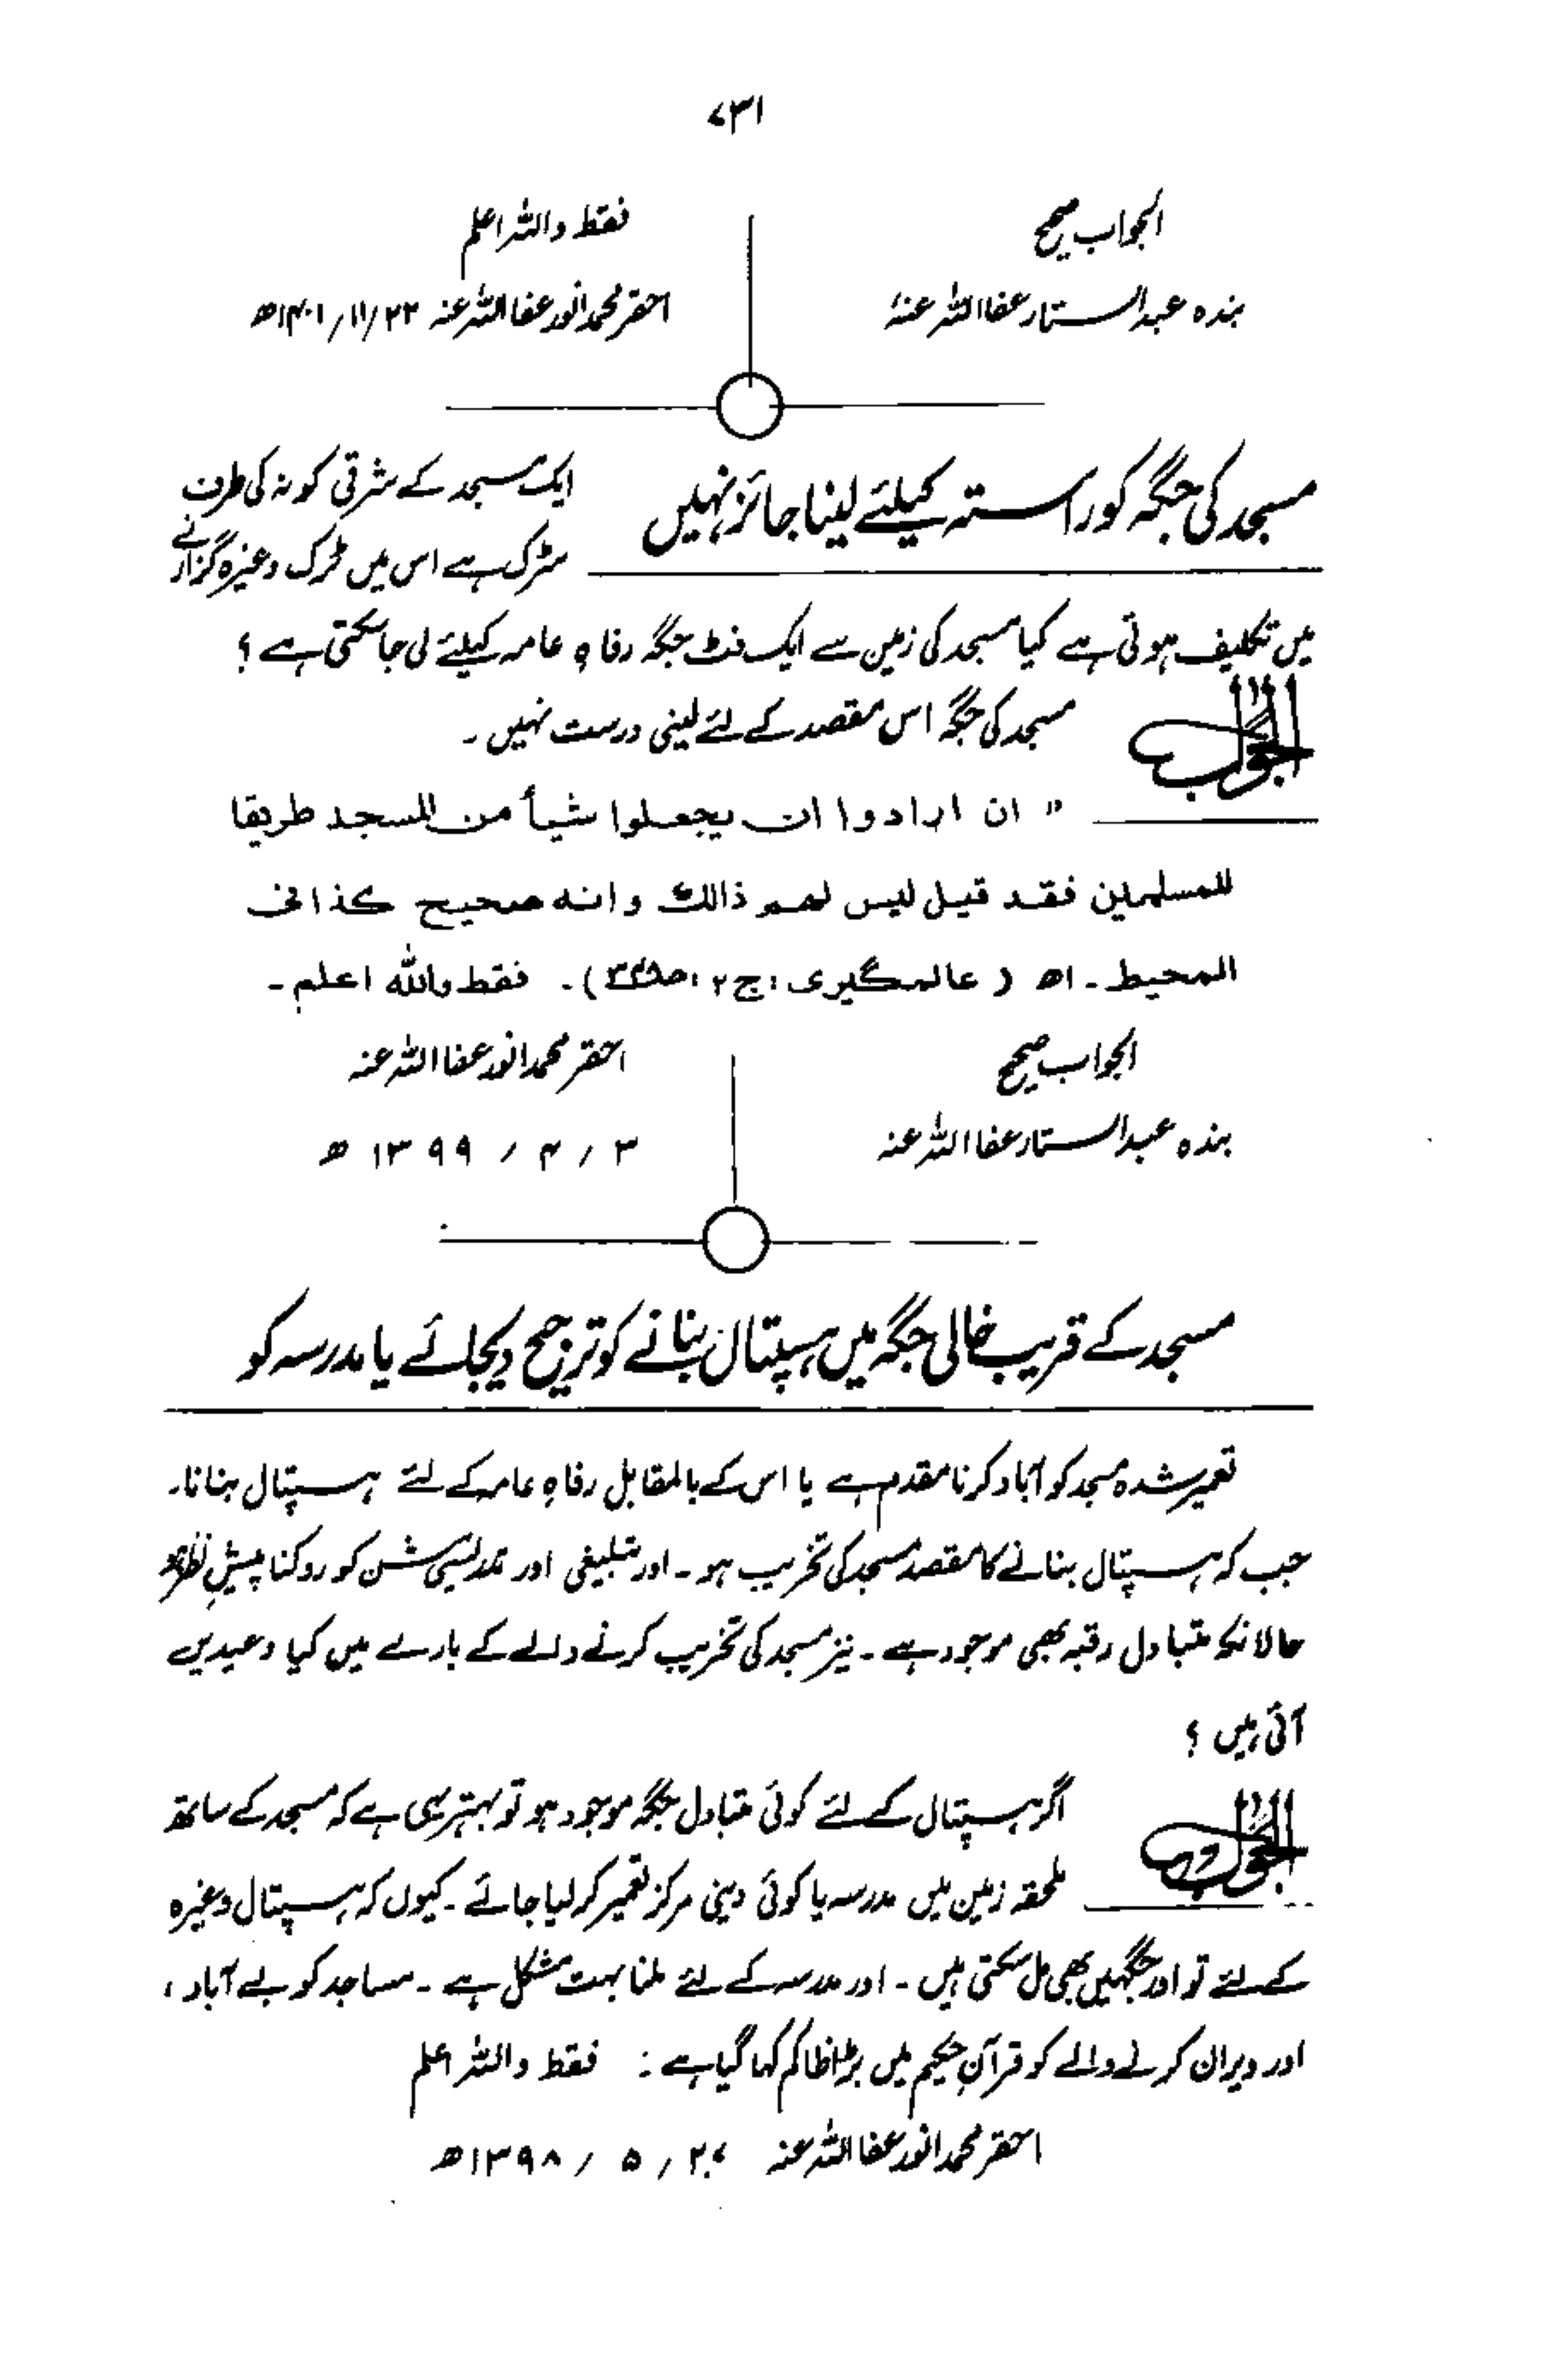 ۷۳۱
الجواب صحیح
بندہ عبدالستار عفا اللہ عنہٗ
فقط واللہ اعلم
احقر محمد انور عفا اللہ عنہ ۲۳/۱۱/۱۴۰۱ھ
مسجد کی جگہ کو راستہ کیلئے لینا جائز نہیں
ایک مسجد کے مشرقی کونہ کی طرف
سڑک ہے اس میں ٹرک وغیرہ گزارنے
میں تکلیف ہوتی ہے کیا مسجد کی زمین سے ایک فٹ جگہ رفاہِ عامہ کیلئے لی جا سکتی ہے ؟
الجواب
مسجد کی جگہ اس مقصد کے لئے لینی درست نہیں ۔
" ان ارادوا ان یجعلوا شیأ من المسجد طریقا
للمسلمین فقد قیل لیس لھم ذالک وانه صحیح کذا فی
المحیط ۔ اھ ( عالمگیری : ج ۲ : ) ۔ فقط واللہ اعلم ۔
الجواب صحیح
بندہ عبدالستار عفا اللہ عنہ
احقر محمد انور عفا اللہ عنہ
۳ / ۴ / ۱۳۹۹ ھ
مسجد کے قریب خالی جگہ میں ہسپتال بنانے کو ترجیح دیجائے یا مدرسہ کو
تعمیر شدہ مسجد کو آباد کرنا مقدم ہے یا اس کے بالمقابل رفاہِ عامہ کے لئے ہسپتال بنانا۔
جب کہ ہسپتال بنانے کا مقصد مسجد کی تخریب ہو ۔ اور تبلیغی اور تدریسی مشن کو روکنا پیشِ نظر ہو
حالانکہ متبادل رقبہ بھی موجود ہے ۔ نیز مسجد کی تخریب کرنے والے کے بارے میں کیا وعیدیں
آئی ہیں ؟
الجواب
اگر ہسپتال کے لئے کوئی متبادل جگہ موجود ہو تو بہتر یہی ہے کہ مسجد کے ساتھ
ملحقہ زمین میں مدرسہ یا کوئی دینی مرکز تعمیر کر لیا جائے ۔ کیوں کہ ہسپتال وغیرہ
کے لئے تو اور جگہیں بھی مل سکتی ہیں ۔ اور مدرسہ کے لئے ملنا بہت مشکل ہے ۔ مساجد کو بے آباد ،
اور ویران کرنے والے کو قرآنِ حکیم میں بڑا ظالم کہا گیا ہے : فقط واللہ اعلم
احقر محمد انور عفا اللہ عنہ / ۵ / ۱۳۹۸ھ